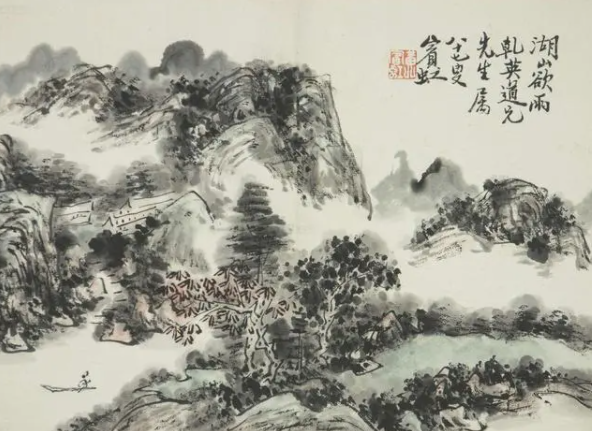 湖山欲雨
乾英道兄
先生属
八十七叟
賓虹